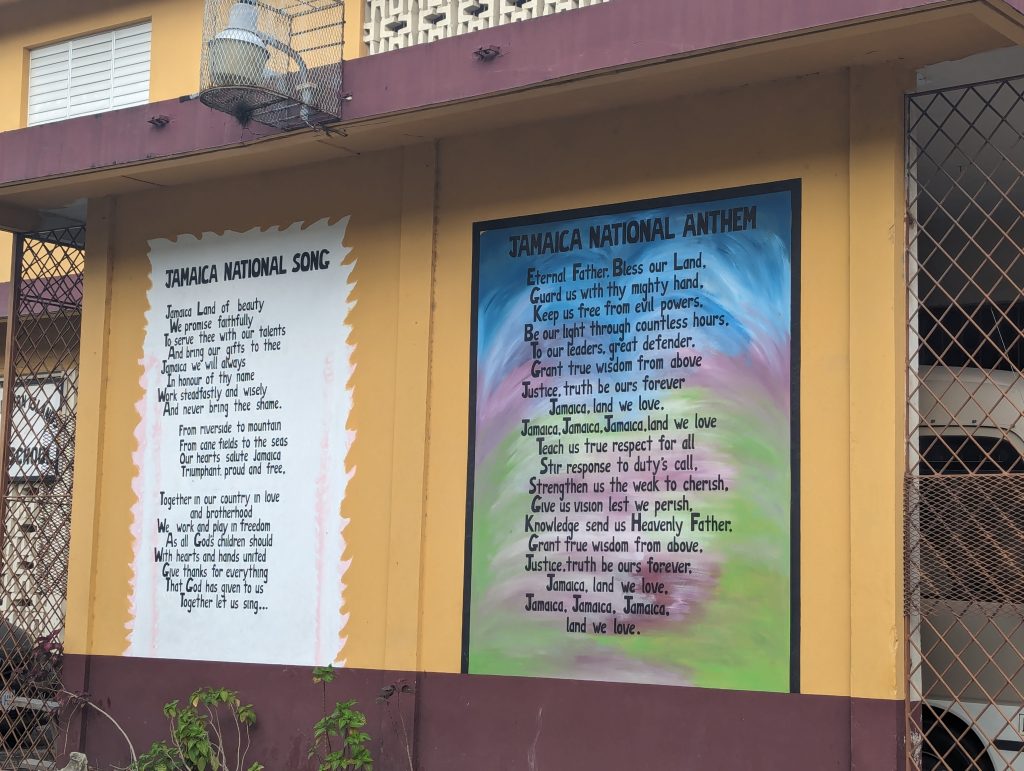 JAMAICA NATIONAL SONG
Jamaica Land of beauty
We promise faithfully
To serve thee with our talents
And bring our gifts to thee
Jamaica we will always
In honour of thy name
Work steadfastly and wisely
And never bring thee shame.
From riverside to mountain
From cane fields to the seas
Our hearts salute Jamaica
Triumphant, proud and free.
Together in our country in love
and brotherhood
We work and play in freedom
As all God's children should
With hearts and hands united
Give thanks for everything
That God has given to us
Together let us sing...
JAMAICA NATIONAL ANTHEM
Eternal Father, Bless our Land,
Guard us with thy mighty hand,
Keep us free from evil powers.
Be our light through countless hours.
To our leaders, great defender.
Grant true wisdom from above
Justice, truth be ours forever
Jamaica, land we love.
Jamaica, Jamaica, Jamaica, land we love
Teach us true respect for all
Stir response to duty's call,
Strengthen us the weak to cherish,
Give us vision lest we perish,
Knowledge send us Heavenly Father.
Grant true wisdom from above,
Justice, truth be ours forever,
Jamaica, land we love,
Jamaica, Jamaica, Jamaica,
land we love.
SCHOOL